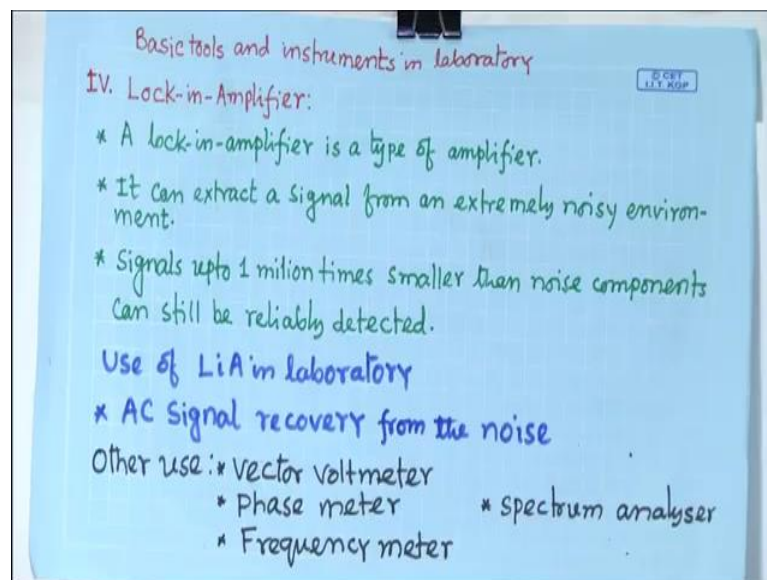 Basic tools and instruments in laboratory
© CET
I.I.T. KGP
IV. Lock-in-Amplifier:
* A lock-in-amplifier is a type of amplifier.
* It can extract a signal from an extremely noisy environ-
ment.
* Signals upto 1 milion times smaller than noise components
can still be reliably detected.
Use of LiA in laboratory
* AC signal recovery from the noise
Other use: * vector voltmeter
* Phase meter * spectrum analyser
* Frequency meter